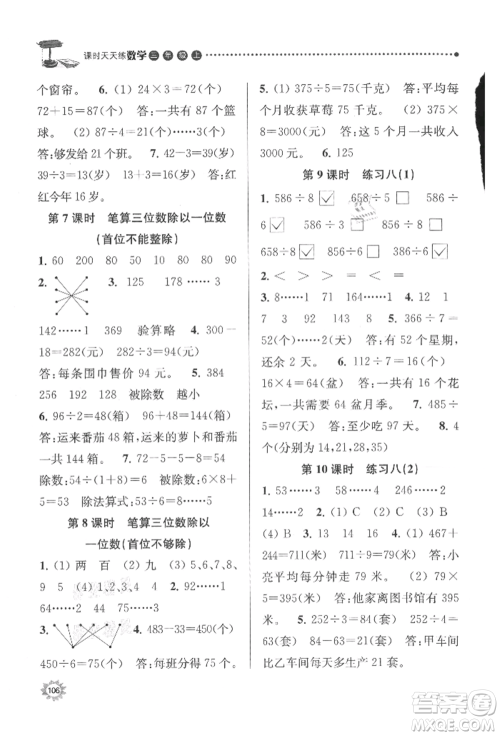 课时天天练数学三年级上
答案
6. (1) 24×3=72(个)
72+15=87(个) 答:一共有 87 个篮
球。 (2) 87÷4=21(个)……3(个)
答:够发给 21 个班。 7. 4-1=3
39÷3=13(岁) 13+3=16(岁) 答:红
红今年 16 岁。
第 7 课时 笔算三位数除以一位数
(首位不能整除)
1. 60 200 80 10 80 80 90
2. 3. 126 135 178……3
142……1 369 验算略 4. 94×3=
282(元) 282÷3=94(元)
答:每条围巾售价 94 元。 5. 384
256 106 被除数 越小
6. 96÷2=48(箱) 96+48=144(箱)
答:运来番茄 48 箱,运来的萝卜和番茄一
共 144 箱。 7. 53-5-5=43 43÷
8=5……3 除数:5+1=6 被除数:48
+5=53 除法算式:53÷6=8……5
第 8 课时 笔算三位数除以
一位数(首位不够除)
1. (1) 两 百 (2) 九 (3) 5、6、7、8、
9 5 (4) 1、2、3、4
2. 37 81 45……4 54
3. 4. 483-33=450(个)
450÷5=90(个) 答:每班分到 90 个。
5. (1) 375÷5=75(千克) 答:平均每
个月收获草莓 75 千克。 (2) 375×
8=3000(元) 答:一共可以收入
3000 元。 6. 125
第 9 课时 练习八(1)
1. 586÷8 ☑ 658÷5 □ 586÷5 □
658÷8 ☑ 856÷5 □ 856÷6 ☑
2. < > < = > >
3. 8……1 71 164……1 4. (1) 1
3 (2) 142 13 5. 366÷7=
52(个)……2(天) 答:有 52 个星期,
还余 2 天。 6. 112÷7=16(个)
16×4=64(盆) 答:一共有 16 个花
坛,一共有 64 盆月季。 7. 485÷5=
97(次) 答:至少吃 97 次。
4(分别为 14,21,28,35)
第 10 课时 练习八(2)
1. 53……3 58……4 246……2
14……2 2. (1) C (2) C (3) B
(4) B (5) A (6) B 3. (1) 467+
244=711(米) 711÷9=79(米) 答:小
亮平均每分钟走 79 米。
711(米) 答:他家离图书馆有 711 米。
4. 252÷4=63(套) 252÷3=84(套)
84-63=21(套) 答:甲车间
比乙车间每天多生产 21 套。
106
答案圈
MXQE.COM